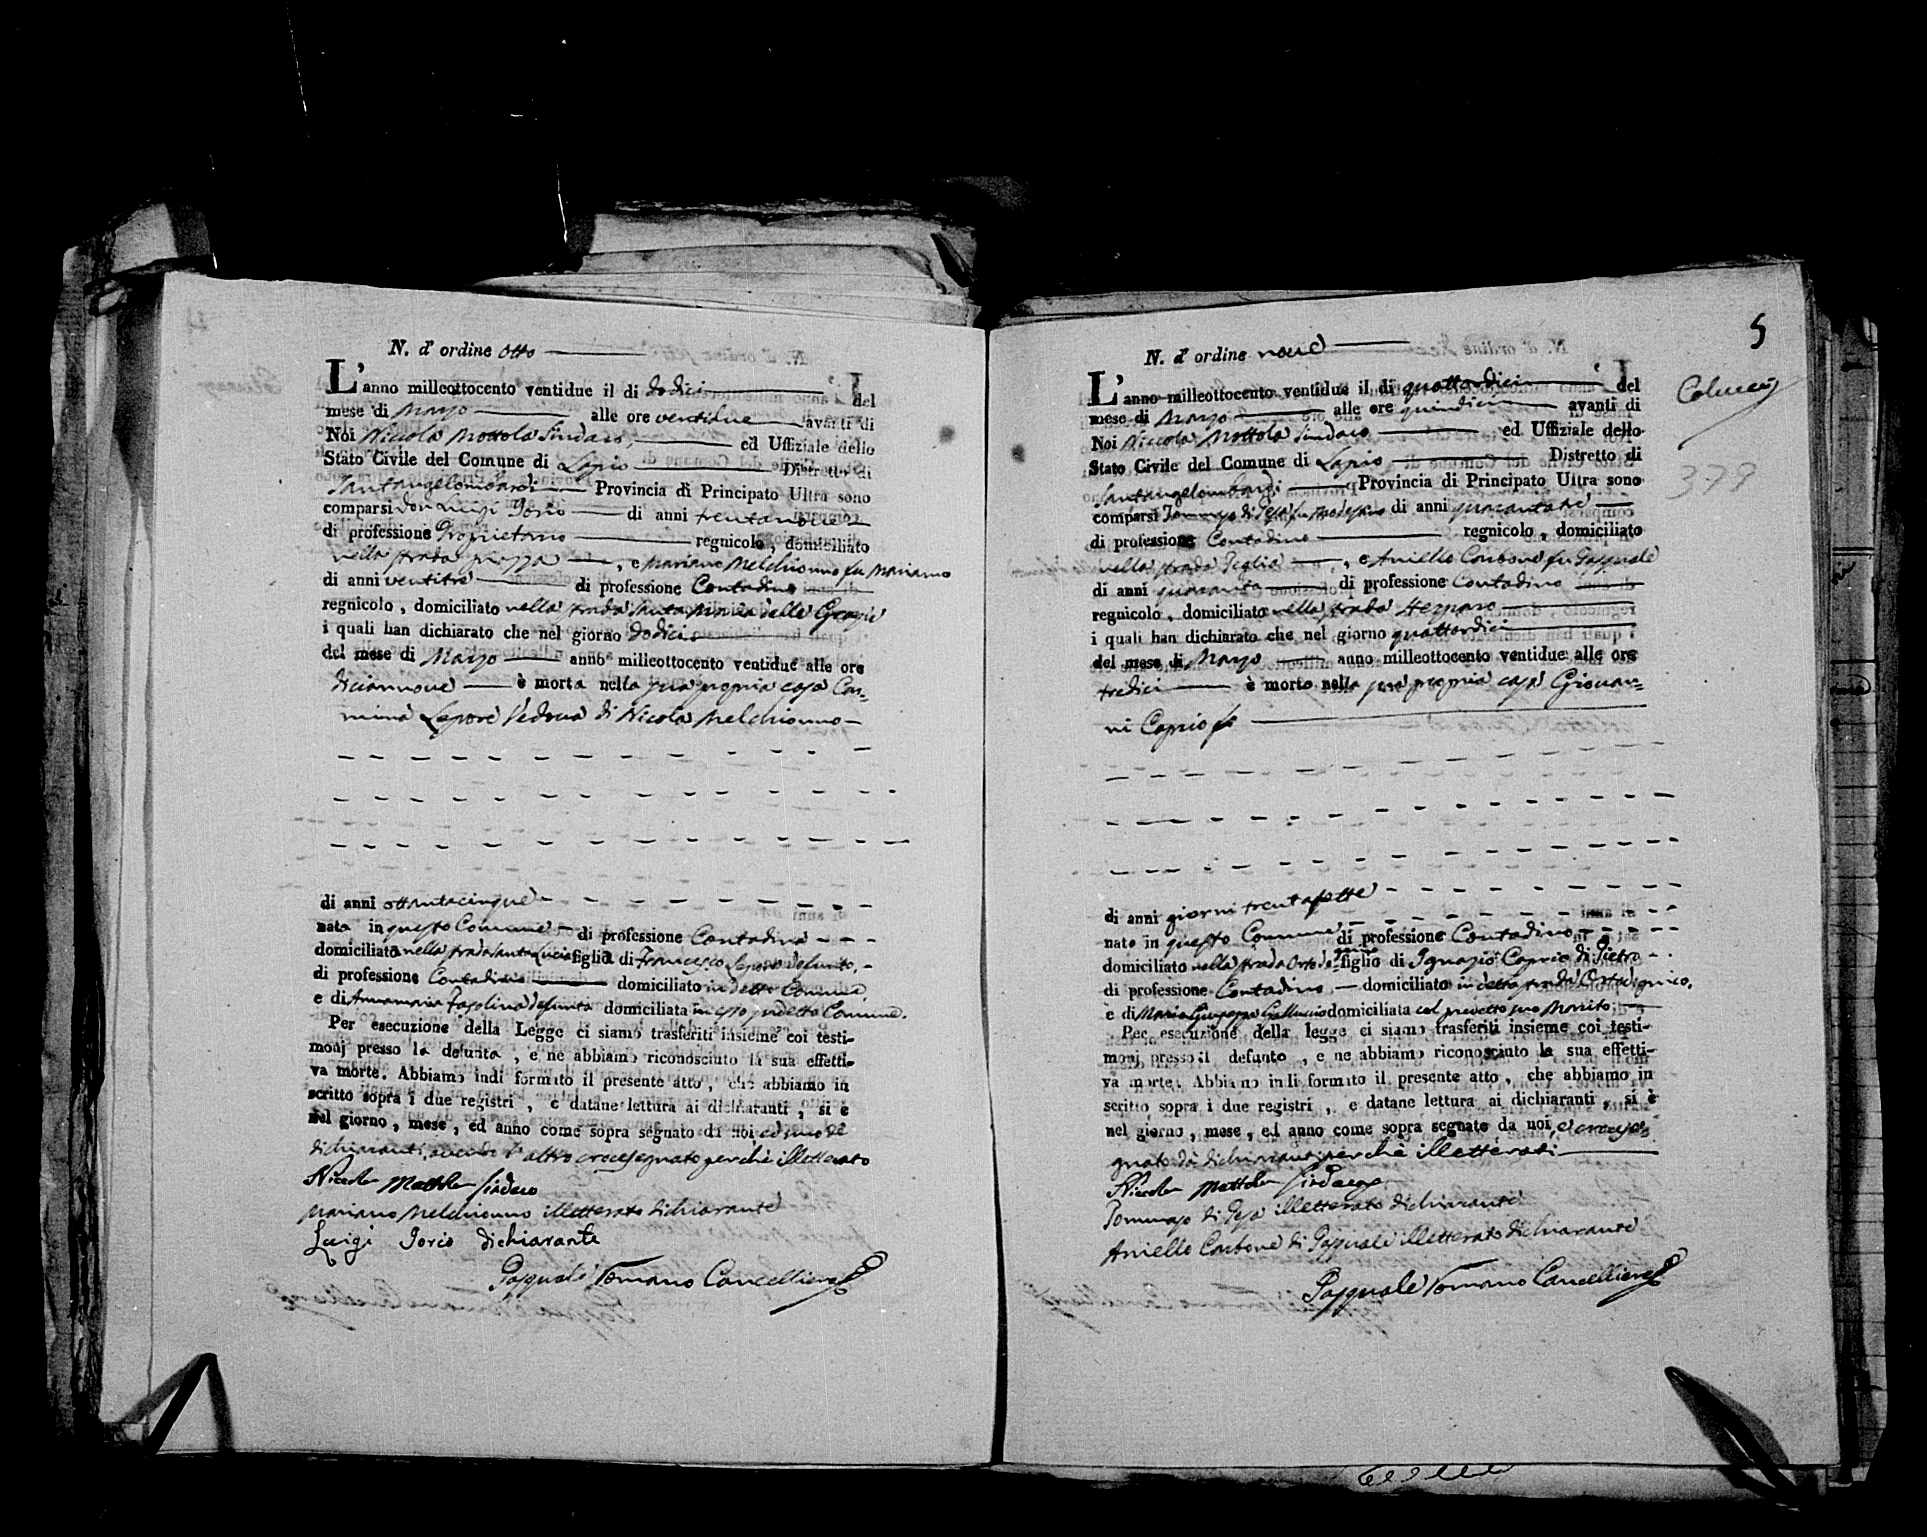 N. d' ordine otto
L'anno milleottocento ventidue il di dodici del
mese di Marzo alle ore ventidue avanti di
Noi Niccola Mottola Sindaco ed Uffiziale dello
Stato Civile del Comune di Lapio Distretto di
Santangelombardi Provincia di Principato Ultra sono
comparsi Don Luigi Iorio di anni trentanove
di professione Proprietario regnicolo, domiciliato
nella strada piazza, e Mariano Melchionno fu Mariano
di anni ventitre di professione Contadino
regnicolo, domiciliato nella strada Santa Maria delle Grazie
i quali han dichiarato che nel giorno dodici
del mese di Marzo anno milleottocento ventidue alle ore
diciannove è morta nella sua propria casa Car-
mina Lepore Vedova di Nicola Melchionno
di anni ottantacinque
nata in questo Comune di professione Contadina
domiciliata nella strada Santa Lucia figlia di Francesco Lepore defunto,
di professione Contadino domiciliato in detto Comune,
e di Annamaria defunta domiciliata in esso predetto Comune.
Per esecuzione della Legge ci siamo trasferiti insieme coi testi-
monj presso la defunta, e ne abbiamo riconosciuto la sua effetti-
va morte. Abbiamo indi formato il presente atto, che abbiamo in
scritto sopra i due registri, e datane lettura ai dichiaranti, si è
nel giorno, mese, ed anno come sopra segnato da noi ed uno de'
dichiaranti, avendo l'altro crocesegnato perchè illetterato
Niccola Mottola Sindaco
Mariano Melchionno illetterato dichiarante
Luigi Iorio dichiarante
Pasquale Tomano Cancelliere
5
N. d' ordine nove
L'anno milleottocento ventidue il di quattordici del
Colucci
mese di Marzo alle ore quindici avanti di
Noi Niccola Mottola Sindaco ed Uffiziale dello
Stato Civile del Comune di Lapio Distretto di
379
Santangelombardi Provincia di Principato Ultra sono
comparsi Tommaso di Gesa fu di anni quarantatre
di professione Contadino regnicolo, domiciliato
nella strada Teglia, e Aniello Carbone fu Pasquale
di anni quaranta di professione Contadino
regnicolo, domiciliato nella strada
i quali han dichiarato che nel giorno quattordici
del mese di Marzo anno milleottocento ventidue alle ore
tredici è morto nella sua propria casa Giovan-
ni Caprio
di anni giorni trentasette
nato in questo Comune di professione Contadino
domiciliato nella strada Ortodomnico figlio di Ignazio Caprio di Pietro
di professione Contadino domiciliato in detta strada Ortodomnico,
e di Maria Giuseppa domiciliata col predetto suo Marito
Per esecuzione della legge ci siamo trasferiti insieme coi testi-
monj presso il defunto, e ne abbiamo riconosciuto la sua effetti-
va morte. Abbiamo indi formato il presente atto, che abbiamo in
scritto sopra i due registri, e datane lettura ai dichiaranti, si è
nel giorno, mese, ed anno come sopra segnato da noi, e crocese-
gnato da' dichiaranti perchè illetterati
Niccola Mottola Sindaco
Tommaso di Gesa illetterato dichiarante
Aniello Carbone di Pasquale illetterato dichiarante
Pasquale Tomano Cancelliere